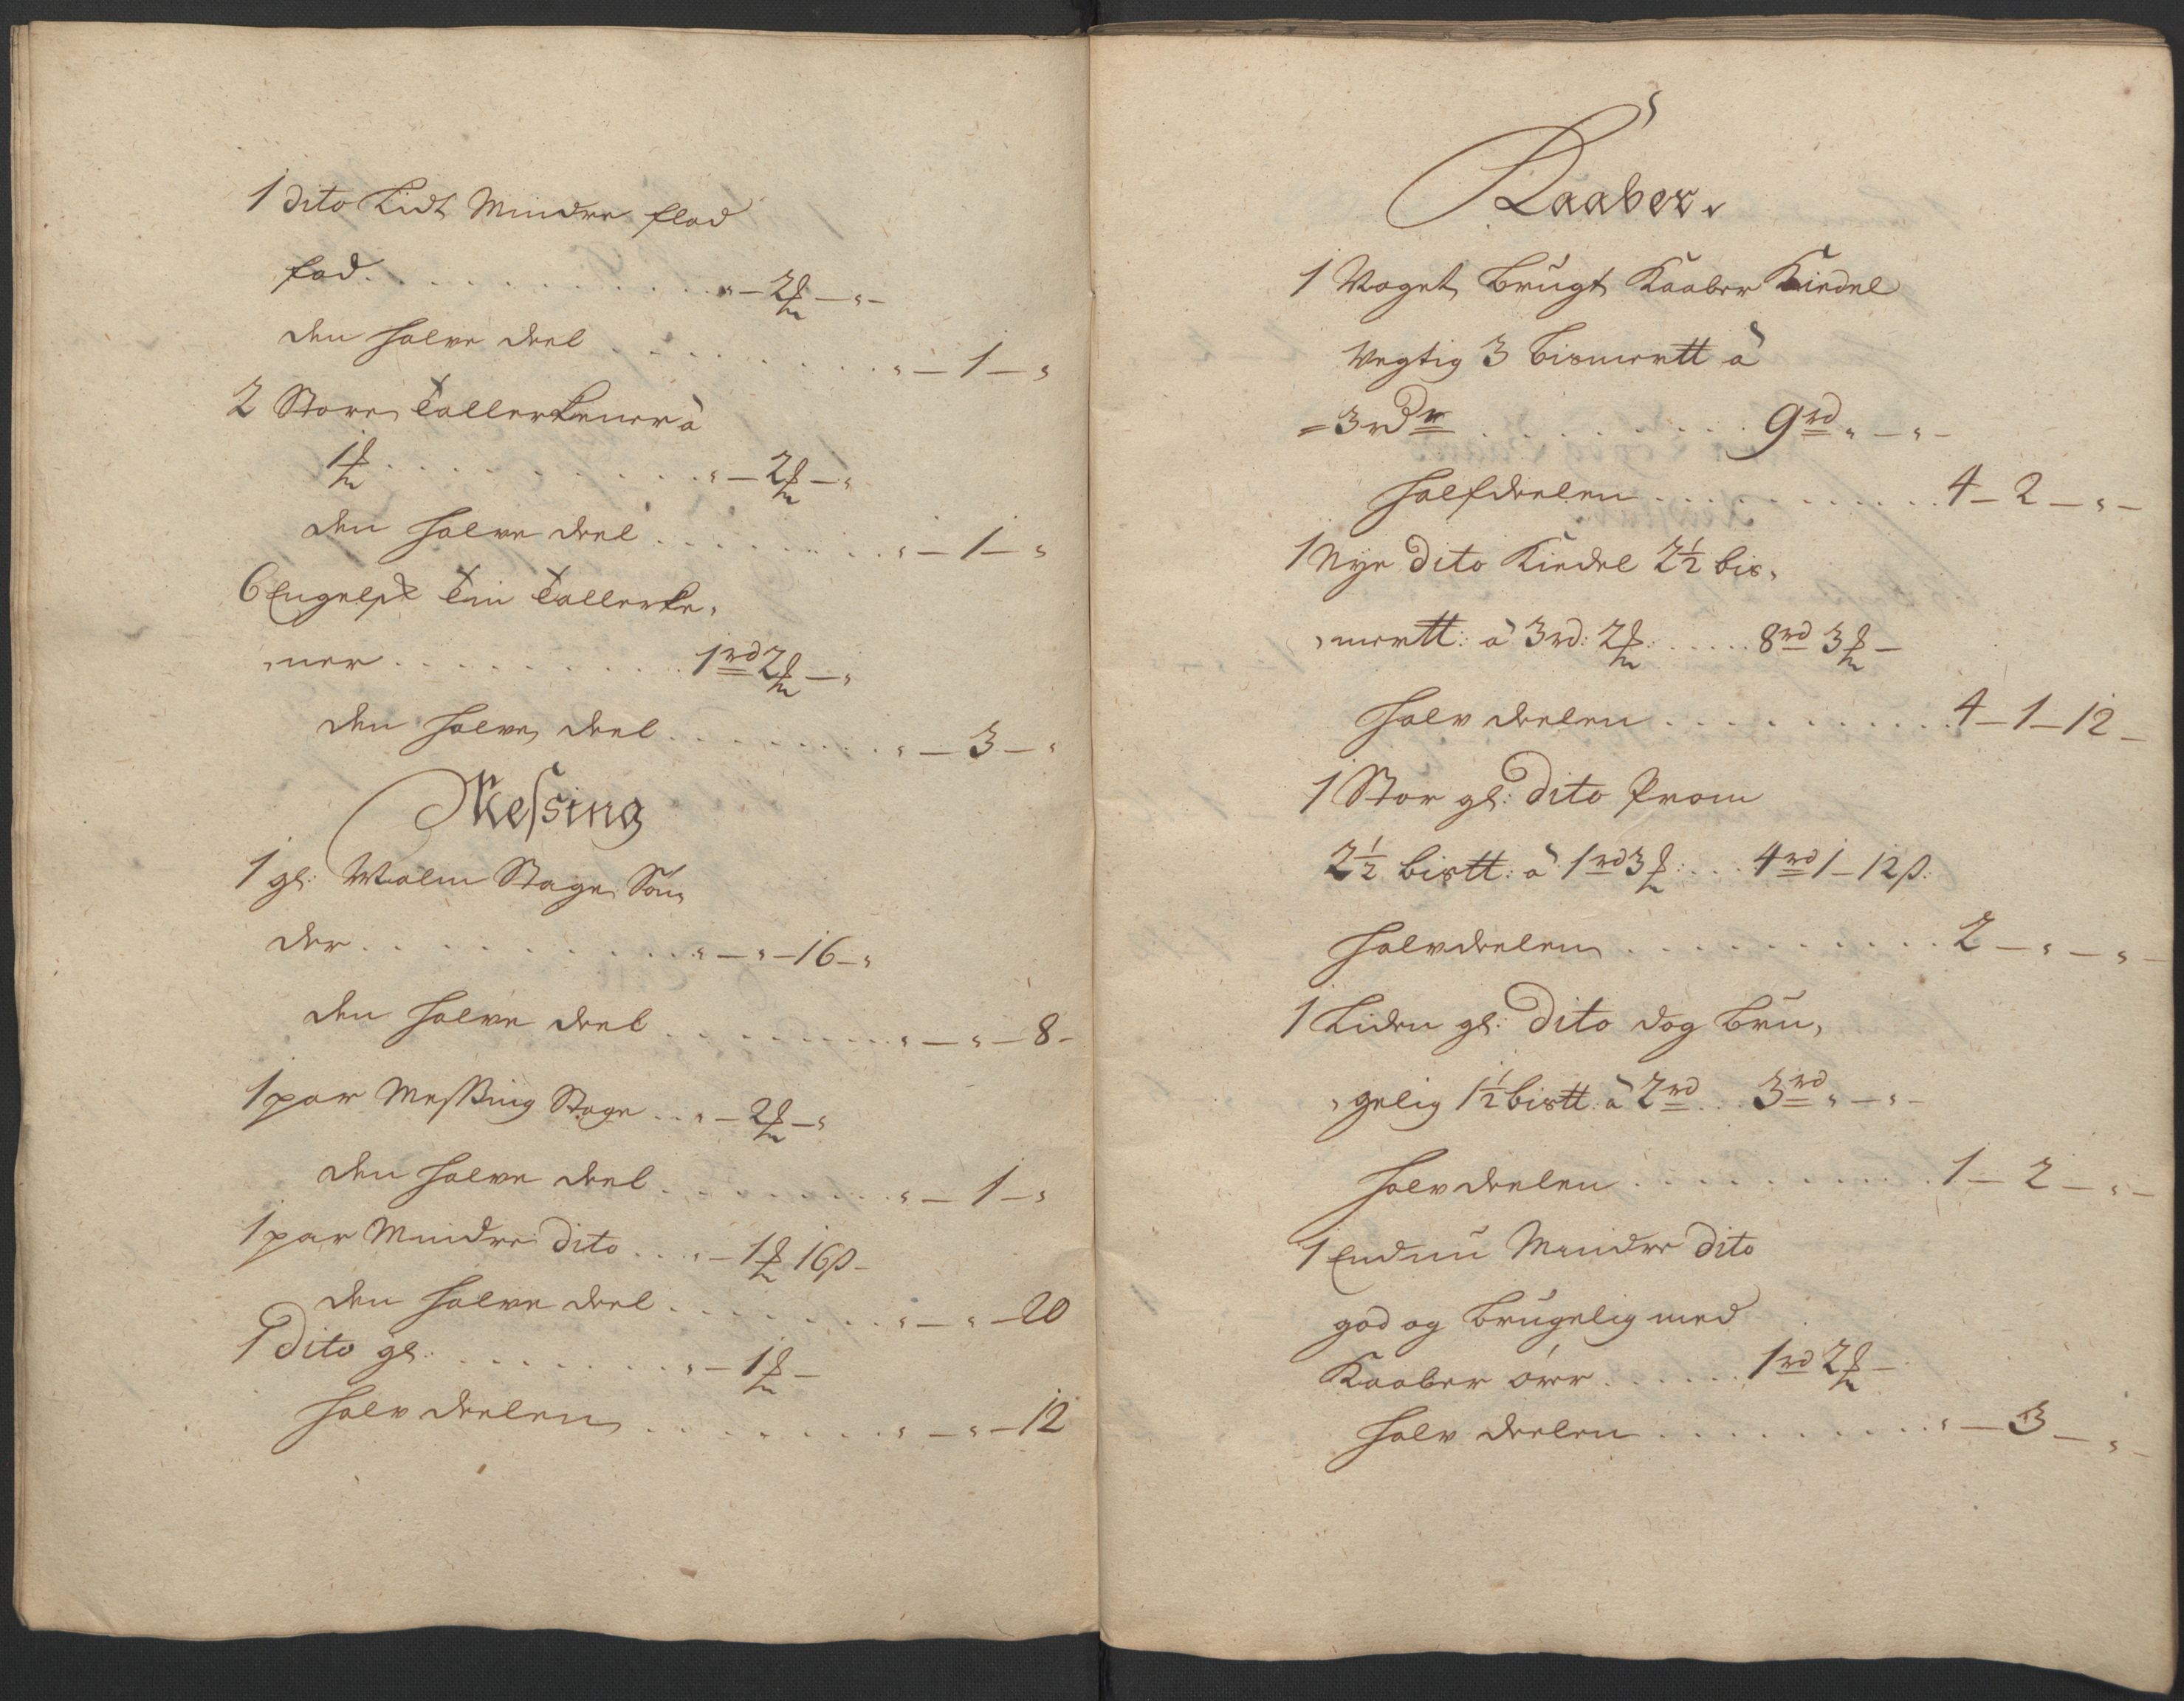 1 dito Lidt Mindre flad
fad . . . . . . . . . . „ — 2 ℔ — „ —
den halve deel . . . . . . . . „ — 1 — „
2 Store Tallerkener à
1 ℔ . . . . . . . . . . „ — 2 ℔ — „
den halve deel . . . . . . . . „ — 1 — „
6 Engelske Tin Tallerke„
„ner . . . . . . . . . 1 rd 2 ℔ — „
den halve deel . . . . . . . . „ — 3 — „
Messing
1 gl: Malm Stage Sön„
der . . . . . . . . . . „ — „ — 16 — „
den halve deel . . . . . . . . „ — „ — 8 —
1 par Messing Stage . . „ — 2 ℔ — „
den halve deel . . . . . . . . „ — 1 — „
1 par Mindre dito . . . „ — 1 ℔ 16 β —
den halve deel . . . . . . . . „ — „ — 20
1 Dito gl: . . . . . . . . „ — 1 ℔ —
halv deelen . . . . . . . . „ — „ — 12
Kaaber
1 Noget brugt Kaaber Kiedel
Vegtig 3 bismertt à
= 3 rdr . . . . . . . . 9 rd „ — „ —
halfdeelen . . . . . . . . . 4 — 2 — „ —
1 Nye dito Kiedel 2 1/2 bis„
„mertt: à 3 rd: 2 ℔: . . . . . 8 rd 3 ℔ —
halv deelen . . . . . . . . . 4 — 1 — 12 —
1 Stor gl: dito from
2 1/2 bistt: à 1 rd 3 ℔: . . . 4 rd 1 — 12 β:
halvdeelen . . . . . . . . . 2 — „ — „ —
1 Liden gl: dito dog bru„
„gelig 1 1/2 bistt: à 2 rd . . . 3 rd „ — „ —
halv deelen . . . . . . . . . 1 — 2 — „ —
1 Endnu Mindre dito
god og brugelig med
Kaaber örer . . . . . . 1 rd 2 ℔ —
halv deelen . . . . . . . . . „ — 3 — „ —